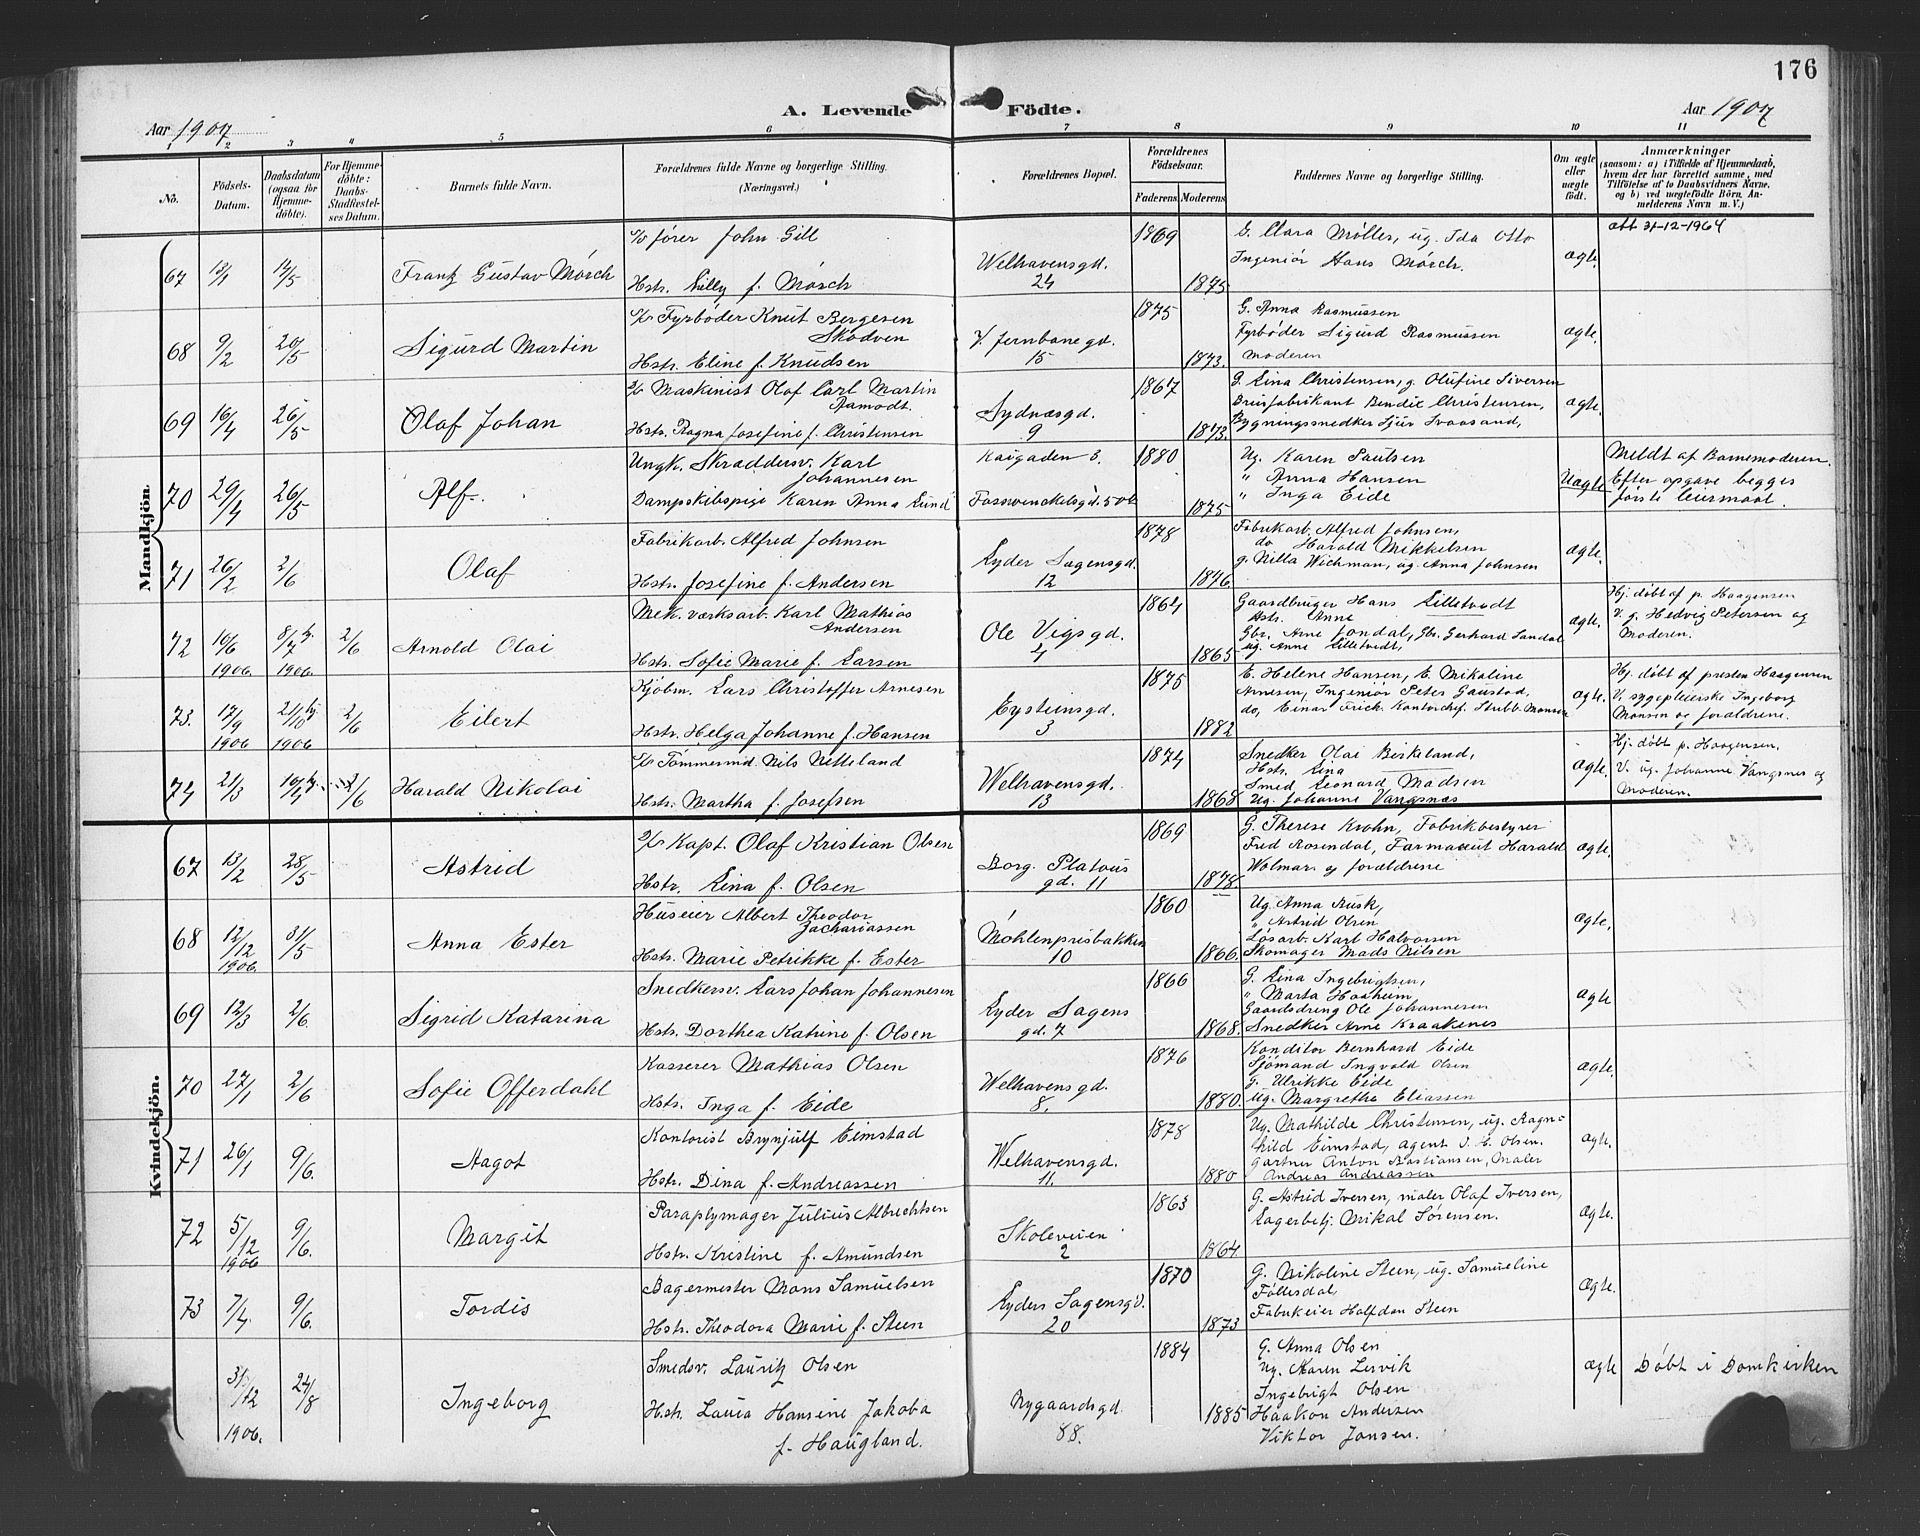 176
A. Levende Födte.
Aar 1907
Aar 1907
1 2 3 4 5 6 7 8 9 10 11
No.
Födsels-Datum.
Daabsdatum (ogsaa for Hjemmedöbte).
For Hjemmedöbte: Daabs-Stadfæstelses Datum.
Barnets fulde Navn.
Forældrenes fulde Navne og borgerlige Stilling. (Næringsvei.)
Forældrenes Bopæl.
Forældrenes Födselsaar.
Faderens Moderens
Faddernes Navne og borgerlige Stilling.
Om ægte eller uægte födt.
Anmærkninger
(saasom: a) i Tilfælde af Hjemmedaab, hvem der har forrettet samme, med Tilföielse af to Daabsvidners Navne, og b) ved uægtefödte Börn, Anmelderens Navn m. V.)
Mandkjön.
67 Frantz Gustav Mørsch
fører John Gill
Hstr. Lilly f. Mørsch
Welhavensgd. 24
1869 1875
G. Clara Møller, ug. Ida Otto
Ingeniør Hans Mørsch.
ægte.
att 31-12-1964
68 9/2 20/5 Sigurd Martin
Fyrbøder Knut Bergesen Skodven
Hstr. Eline f. Knudsen
V. Jernbanegd. 15
1875 1873.
G. Anna Rasmussen
Fyrbøder Sigurd Rasmussen
Moderen
ægte.
69 16/4 26/5 Olaf Johan
Maskinist Olaf Carl Martin Ramodt.
Hstr. Ragna Josefine f. Christensen
Sydnæsgd. 9
1867 1873.
G. Lina Christensen, g. Olufine Siversen
Brusfabrikant Bendic Christensen,
Bygningssnedker Sjur Svaasand,
ægte.
70 29/4 26/5 Alf.
Ungk. Skræddersv. Karl Johannesen
Dampskibspige Karen Anna Lund
Kaigaden 3.
Fosswinckelsgd. 50b
1880 1875
Ug. Karen Paulsen
" Anna Hansen
" Inga Eide
Uægte
Meldt af Barnemoderen.
Efter opgave begges
første leiermaal.
71 26/2 2/6 Olaf
Fabrikarb. Alfred Johnsen
Hstr. Josefine f. Andersen
Lyder Sagensgd. 12
1878 1876
Fabrikarb. Alfred Johnsen,
do Harald Mikkelsen
g. Nilla Wichman, ug. Anna Johnsen
ægte.
72 10/6 1906 8/7 hj. 1906. 2/6 Arnold Olai
Mek. værksarb. Karl Mathias Andersen
Hstr. Sofie Marie f. Larsen
Ole Vigsgd. 4
1864 1865
Gaardbruger Hans Lilletvedt
Hstr. Anne
Gbr. Arne Jondal, Gbr. Gerhard Landal
ug. Anne Lilletvedt,
ægte.
Hj. døbt af p. Haagensen
V. g. Hedvig Petersen og
Moderen.
73. 17/9 1906 21/10 hj. 1906 2/6 Eilert
Kjøbm. Lars Christoffer Arnesen
Hstr. Helga Johanne f. Hansen
Eysteinsgd. 3
1875 1882
E. Helene Hansen, E. Nikoline
Arnesen, Ingeniør Peter Gaustad,
do, Einar Krick. Kontorchef Stubb. Monsen
ægte.
Hj. døbt af presten Haagensen
V. sygepleierske Ingeborg
Monsen og forældrene.
74 21/3 10/4 hj. 2/6 Harald Nikolai
Tømmermd. Nils Nitteland
Hstr. Martha f. Josefsen
Welhavensgd. 13
1874 1868
Snedker Olai Birkeland,
Hstr. Lina
Smed Leonard Madsen
Ug. Johanne Vangsnæs
ægte.
Hj. døbt p. Haagensen.
V. ug. Johanne Vangsnes og
Moderen.
Kvindekjön.
67 13/2 28/5 Astrid
Kapt. Olaf Kristian Olsen
Hstr. Lina f. Olsen
Borg. Platous gd. 11
1869 1878
G. Therese Krohn, Fabrikbestyrer
Fred Rosendal, Farmaceut Harald
Wolmar og forældrene
ægte.
68 12/12 1906. 31/5 Anna Ester
Huseier Albert Theodor Zachariassen
Hstr. Marie Petrikke f. Ester
Møhlenprisbakken 10
1860 1866.
Ug. Anna Rusk,
" Astrid Olsen
Løsarb. Karl Halvorsen
Skomager Mads Nilsen
ægte.
69 12/3 2/6. Sigrid Katarina
Snedkersv. Lars Johan Johannesen
Hstr. Dorthea Katrine f. Olsen
Lyder Sagens gd. 7
1866 1868.
G. Lina Ingebrigtsen,
" Marta Haaheim
Gaardsdreng Ole Johannesen
Snedker Arne Kraakenes
ægte
70 27/1 2/6 Sofie Offerdahl
Kasserer Mathias Olsen
Hstr. Inga f. Eide
Welhavensgd. 8.
1876 1880.
Konditor Bernhard Eide
Sjømand Ingvald Olsen
g. Ulrikke Eide
ug. Margrethe Eliassen
ægte.
71 26/1 9/6. Aagot
Kontorist Brynjulf Eimstad
Hstr. Dina f. Andreassen
Welhavensgd. 11.
1878 1880
Ug. Mathilde Christensen, ug. Ragn-
hild Eimstad, agent J. E. Olsen.
Gartner Anton Bastiansen, Maler
Andreas Andreassen
ægte.
72 5/12 1906 9/6. Margit
Paraplymager Julius Albrechtsen
Hstr. Kristine f. Amundsen
Skoleveien 2
1863 1864
G. Astrid Iversen, maler Olaf Iversen,
Lagerbetj. Mikal Sørensen.
ægte.
73 7/4. 9/6. Tordis
Bagermester Mons Samuelsen
Hstr. Theodora Marie f. Steen
Lyder Sagensgd. 20
1870 1873
G. Nikoline Steen, ug. Samueline
Føllesdal,
Fabrikeier Halfdan Steen
ægte.
31/12 1906. 24/8 Ingeborg
Smedsv. Lauritz Olsen
Hstr. Laura Hansine Jakoba
f. Haugland.
Nygaardsgd. 88.
1884 1885
G. Anna Olsen
Ug. Karen Lervik
Ingebrigt Olsen
Haakon Andersen
Viktor Jansen.
ægte
Døbt i Domkirken